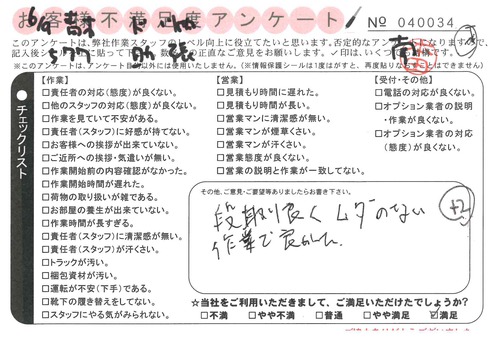 お客様不満足度アンケート
№ 040034
このアンケートは、弊社作業スタッフのレベル向上に役立てたいと思います。否定的なアン
記入後シ
に貼って下
数
の正直なご意見をお願いします。✓印は、いくつ
※このアンケートは、アンケート目的以外には使用しません。（※情報保護シールは1度はがすと、再度貼りな
はできません）
チェックリスト
【作業】
□責任者の対応(態度)が良くない。
□他のスタッフの対応(態度)が良くない。
□作業を見ていて不安がある。
□責任者(スタッフ)に好感が持てない。
□お客様への挨拶が出来ていない。
□ご近所への挨拶・気遣いが無い。
□作業開始前の内容確認がなかった。
□作業開始時間が遅れた。
□荷物の取り扱いが雑である。
□お部屋の養生が出来ていない。
□作業時間が長すぎる。
□責任者(スタッフ)に清潔感が無い。
□責任者(スタッフ)が汗くさい。
□トラックが汚い。
□梱包資材が汚い。
□運転が不安(下手)である。
□靴下の履き替えをしてない。
□スタッフにやる気がみられない。
【営業】
□見積もり時間に遅れた。
□見積もり時間が長い。
□営業マンに清潔感が無い。
□営業マンが煙草くさい。
□営業マンが汗くさい。
□営業態度が良くない。
□営業の説明と作業が一致してない。
【受付・その他】
□電話の対応が良くない。
□オプション業者の説明
・作業が良くない。
□オプション業者の対応
(態度)が良くない。
その他、ご意見・ご要望等ありましたらお書き下さい。
段取り良くムダのない
作業で良かった。
+2
☆当社をご利用いただきまして、ご満足いただけたでしょうか?
□不満 □やや不満 □普通 □やや満足 ☑満足